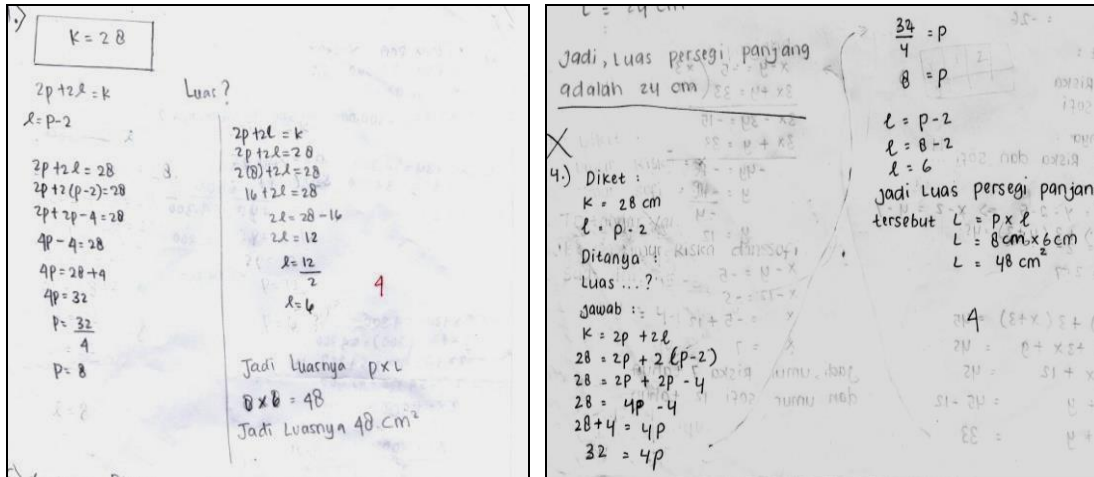 K = 28
2p + 2l = k
Luas?
l = p - 2
2p + 2l = 28
2p + 2(p-2) = 28
2p + 2p - 4 = 28
4p - 4 = 28
4p = 28 + 4
4p = 32
p = 32/4
p = 8
2p + 2l = k
2p + 2l = 28
2(8) + 2l = 28
16 + 2l = 28
2l = 28 - 16
2l = 12
l = 12/2
l = 6
4
Jadi Luasnya p x L
8 x 6 = 48
Jadi Luasnya 48 cm²
Jadi, Luas persegi panjang
adalah 24 cm
4.) Diket :
K = 28 cm
l = p - 2
Ditanya :
Luas ...?
Jawab :
K = 2p + 2l
28 = 2p + 2(p-2)
28 = 2p + 2p - 4
28 = 4p - 4
28 + 4 = 4p
32 = 4p
32/4 = p
8 = p
l = p - 2
l = 8 - 2
l = 6
Jadi Luas persegi panjan
tersebut L = p x l
L = 8 cm x 6 cm
L = 48 cm²
4